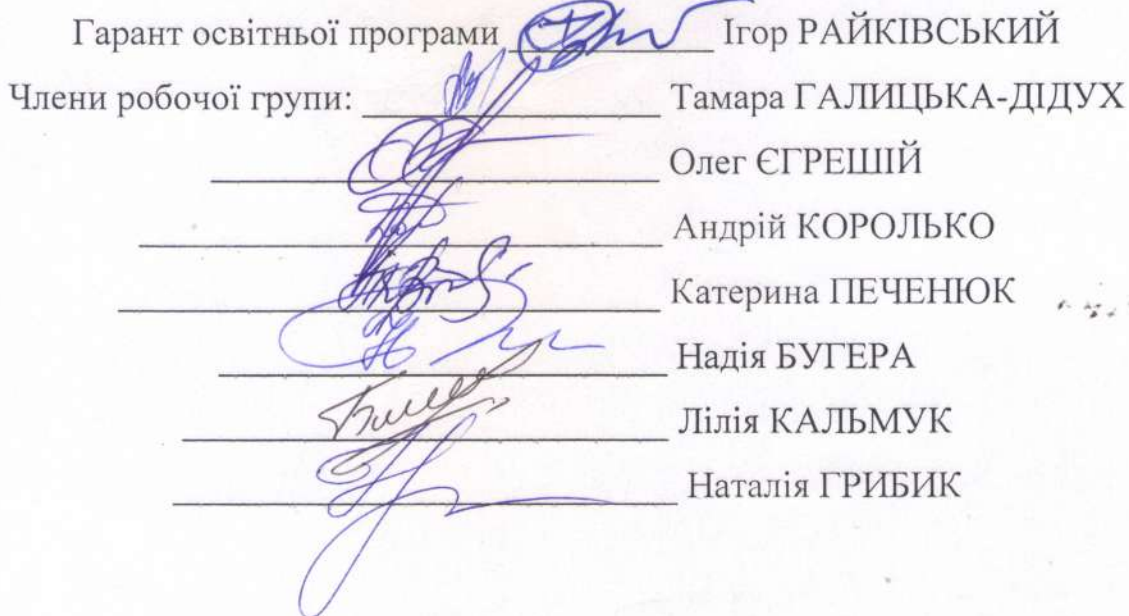 Гарант освітньої програми Ігор РАЙКІВСЬКИЙ
Члени робочої групи: Тамара ГАЛИЦЬКА-ДІДУХ
Олег ЄГРЕШІЙ
Андрій КОРОЛЬКО
Катерина ПЕЧЕНЮК
Надія БУГЕРА
Лілія КАЛЬМУК
Наталія ГРИБИК